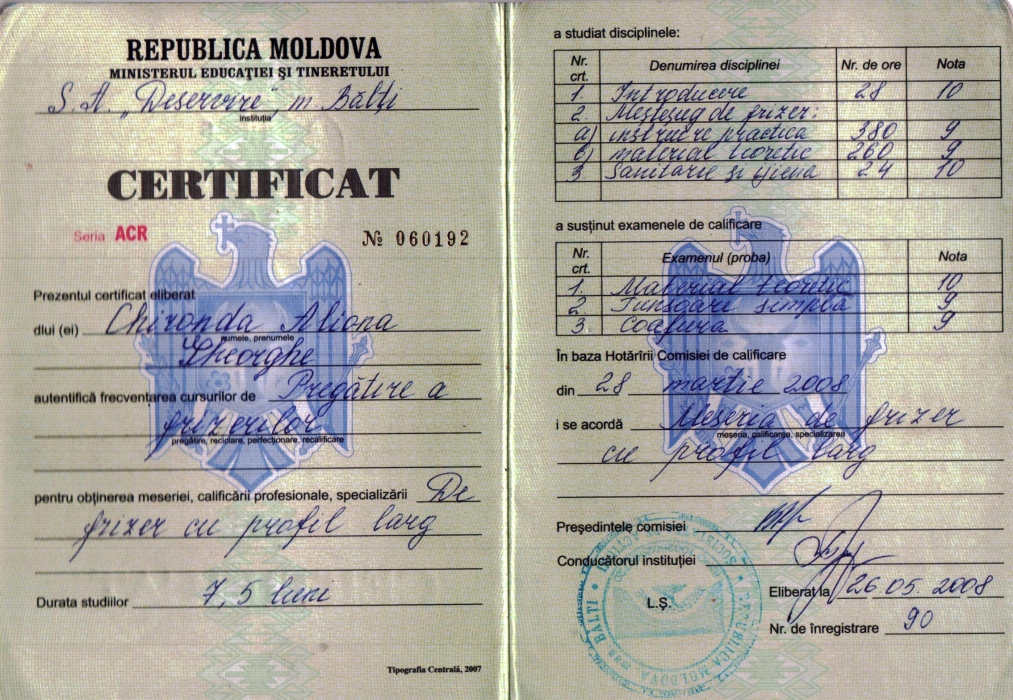 REPUBLICA MOLDOVA
MINISTERUL EDUCAŢIEI ŞI TINERETULUI
S.A. „Deservire” m. Bălţi
instituţia
CERTIFICAT
Seria ACR
№ 060192
Prezentul certificat eliberat
dlui (ei) Chironda Aliona
numele, prenumele
Gheorghe
autentifică frecventarea cursurilor de Pregătire a
frizerilor
pregătire, reciclare, perfecţionare, recalificare
pentru obţinerea meseriei, calificării profesionale, specializării De
frizer cu profil larg
Durata studiilor 7,5 luni
Tipografia Centrală, 2007
a studiat disciplinele:
Nr. crt. Denumirea disciplinei Nr. de ore Nota
1. Introducere 28 10
2. Meşteşug de frizer:
a) instruire practica 380 9
b) material teoretic 260 9
3 Sanitarie şi igiena 24 10
a susţinut examenele de calificare
Nr. crt. Examenul (proba) Nota
1. Material teoretic 10
2. Tunsoare simpla 9
3. Coafura 9
În baza Hotărîrii Comisiei de calificare
din 28 martie 2008
i se acordă Meseria de frizer
meseria, calificarea, specializarea
cu profil larg
Preşedintele comisiei
Conducătorul instituţiei
L.Ş.
Eliberat la 26.05.2008
Nr. de înregistrare 90
REPUBLICA MOLDOVA
mun. BĂLŢI